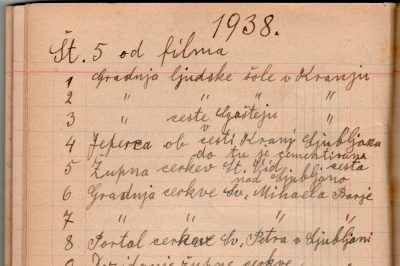 1938.
Št. 5 od filma
1 Gradnja ljudske šole v Kranju
2 " " " "
3 " ceste v Gašteju
4 Jeperca ob cesti Kranj Ljubljana
do tu je cementirana cesta
5 Župna cerkev Št. Vid nad Ljubljano
6 Gradnja cerkve Sv. Mihaela Barje
7 " " " "
8 Portal cerkve Sv. Petra v Ljubljani
9 župne cerkve